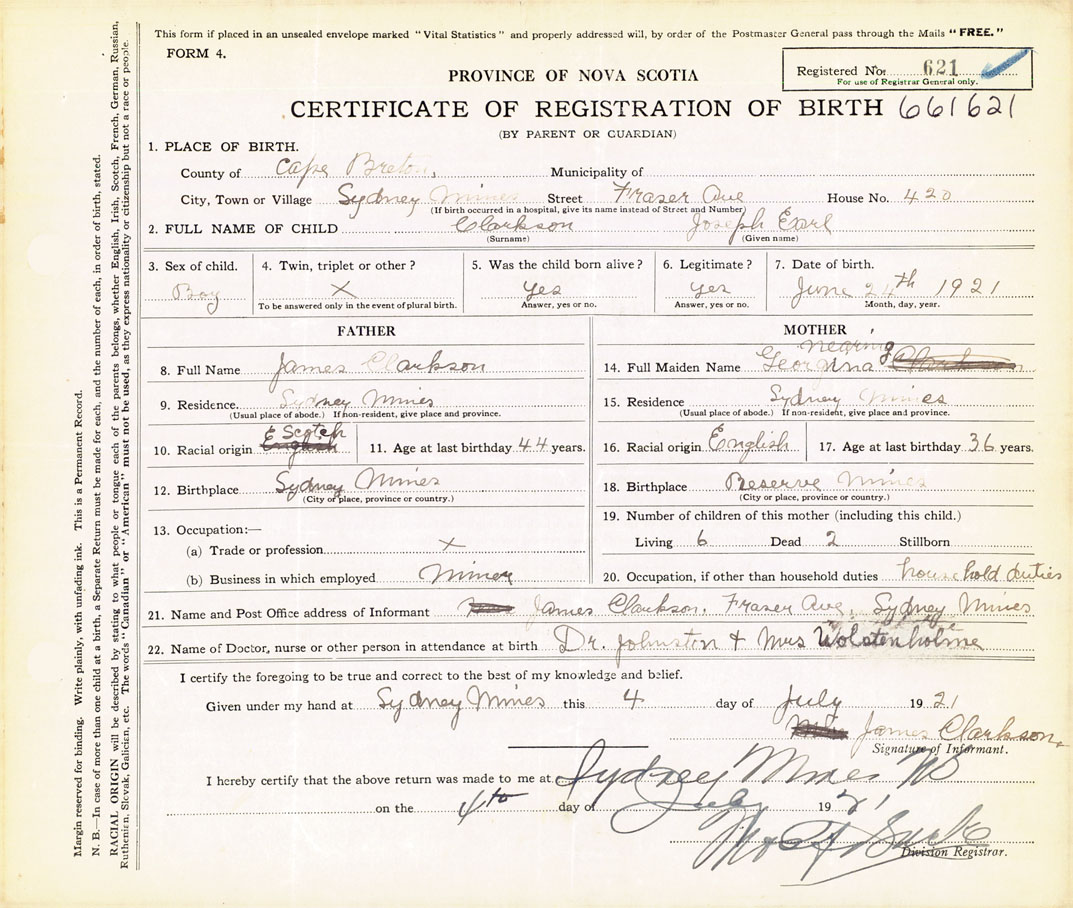 This form if placed in an unsealed envelope marked "Vital Statistics" and properly addressed will, by order of the Postmaster General pass through the Mails "FREE."
FORM 4.
Registered No. 621
For use of Registrar General only.
PROVINCE OF NOVA SCOTIA
CERTIFICATE OF REGISTRATION OF BIRTH 661621
(BY PARENT OR GUARDIAN)
1. PLACE OF BIRTH.
County of Cape Breton, Municipality of
City, Town or Village Sydney Mines Street Fraser Ave House No. 420
(If birth occurred in a hospital, give its name instead of Street and Number)
2. FULL NAME OF CHILD Clarkson Joseph Earl
(Surname) (Given name)
3. Sex of child. 4. Twin, triplet or other? 5. Was the child born alive? 6. Legitimate? 7. Date of birth.
Boy X Yes Yes June 24th 1921
To be answered only in the event of plural birth. Answer, yes or no. Answer, yes or no. Month, day, year.
FATHER
8. Full Name James Clarkson
9. Residence. Sydney Mines
(Usual place of abode.) If non-resident, give place and province.
10. Racial origin Scotch 11. Age at last birthday 44 years.
12. Birthplace Sydney Mines
(City or place, province or country.)
13. Occupation:—
(a) Trade or profession X
(b) Business in which employed Miner
MOTHER
nearing
14. Full Maiden Name Georanna
15. Residence Sydney Mines
(Usual place of abode.) If non-resident, give place and province.
16. Racial origin English 17. Age at last birthday 36 years.
18. Birthplace Reserve Mines
(City or place, province or country.)
19. Number of children of this mother (including this child.)
Living 6 Dead 2 Stillborn
20. Occupation, if other than household duties household duties
21. Name and Post Office address of Informant James Clarkson. Fraser Ave, Sydney Mines
22. Name of Doctor, nurse or other person in attendance at birth Dr. Johnston + Mrs Wolstenholme
I certify the foregoing to be true and correct to the best of my knowledge and belief.
Given under my hand at Sydney Mines this 4 day of July 1921
James Clarkson.
Signature of Informant.
I hereby certify that the above return was made to me at Sydney Mines NS
on the 4th day of July 1921
Division Registrar.
Margin reserved for binding. Write plainly, with unfading ink. This is a Permanent Record.
N. B.—In case of more than one child at a birth, a Separate Return must be made for each, and the number of each, in order of birth, stated.
RACIAL ORIGIN will be described by stating to what people or tongue each of the parents belongs, whether English, Irish, Scotch, French, German, Russian,
Ruthenian, Slovak, Galician, etc. The words "Canadian" or "American" must not be used, as they express nationality or citizenship but not a race or people.